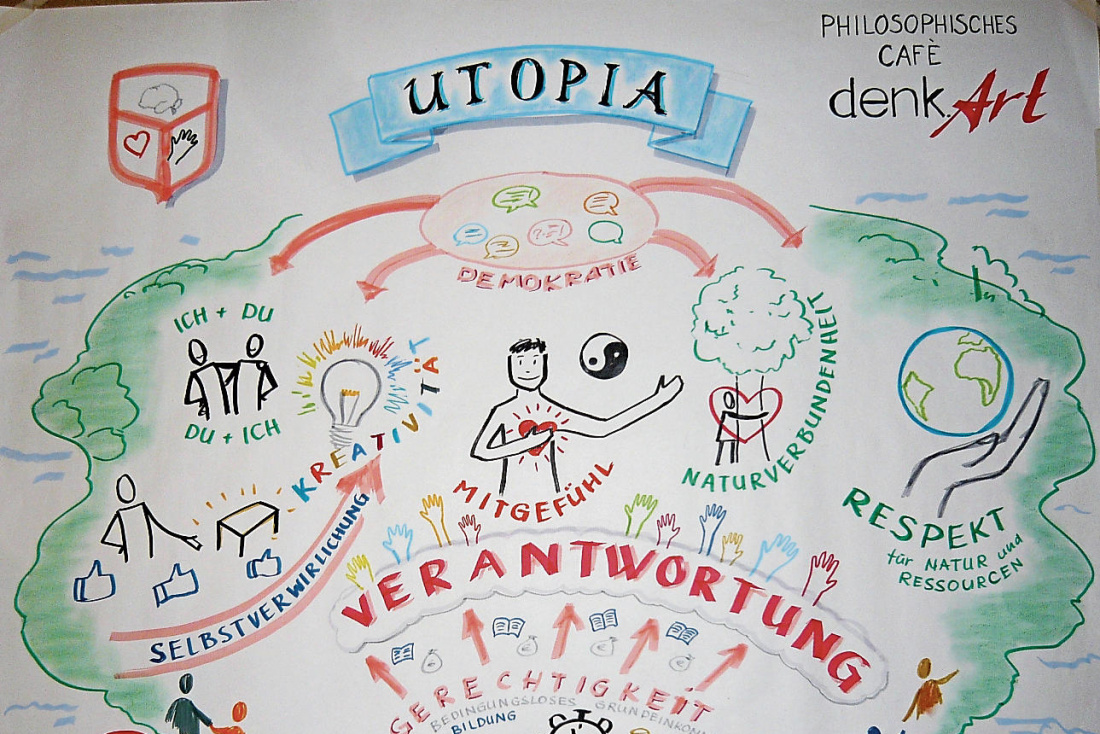 PHILOSOPHISCHES
CAFÈ
denk.Art
UTOPIA
DEMOKRATIE
ICH + DU
DU + ICH
KREATIVITÄT
MITGEFÜHL
NATURVERBUNDENHEIT
RESPEKT
für NATUR und
RESSOURCEN
SELBSTVERWIRLICHUNG
VERANTWORTUNG
GERECHTIGKEIT
BEDINGUNGSLOSES GRUNDEINKOMM
BILDUNG